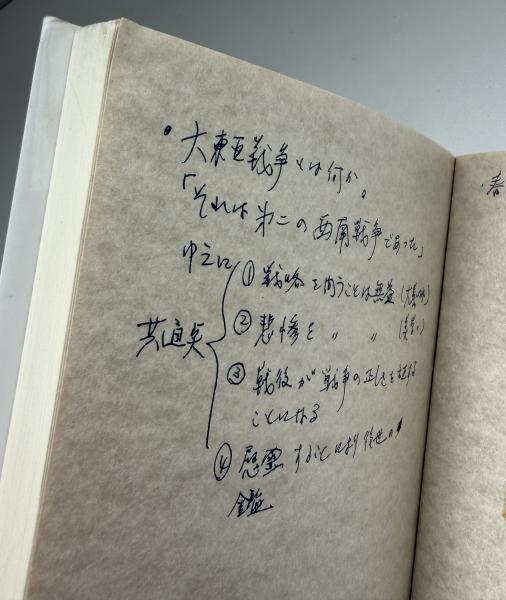 ・大東亜戦争とは何か。
「それは第二の西南戦争であった」
ゆえに
共通点
① 戦略を問うことは無益(
② 悲惨を 〃 〃 (
③ 戦後が戦争の正しさを証する
ことになる
④ 慰霊することにより後世の
鑑
・春